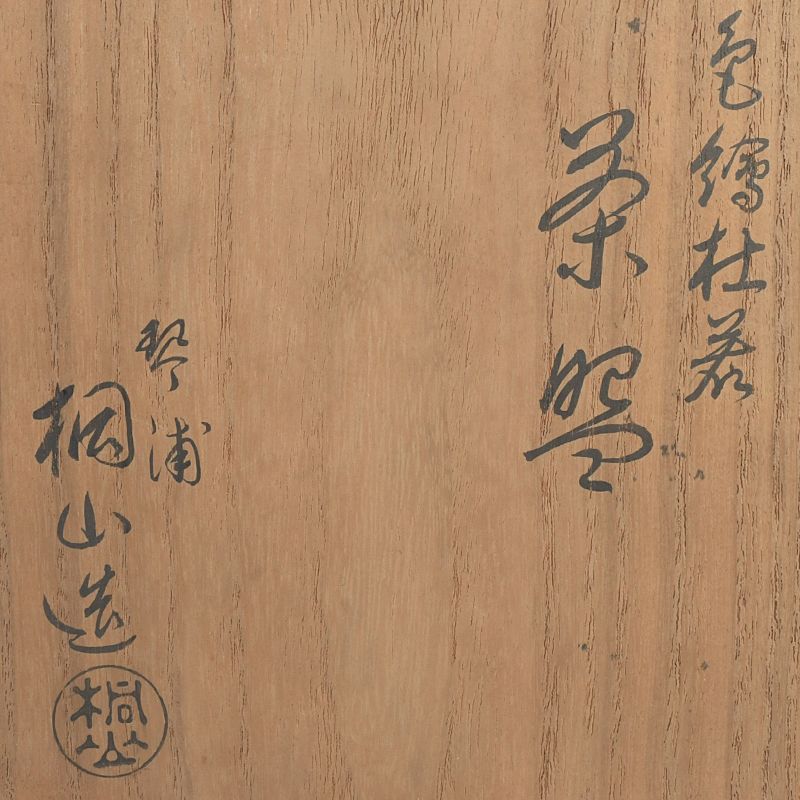 色繪杜若
茶盌
琴浦
桐山造
桐山